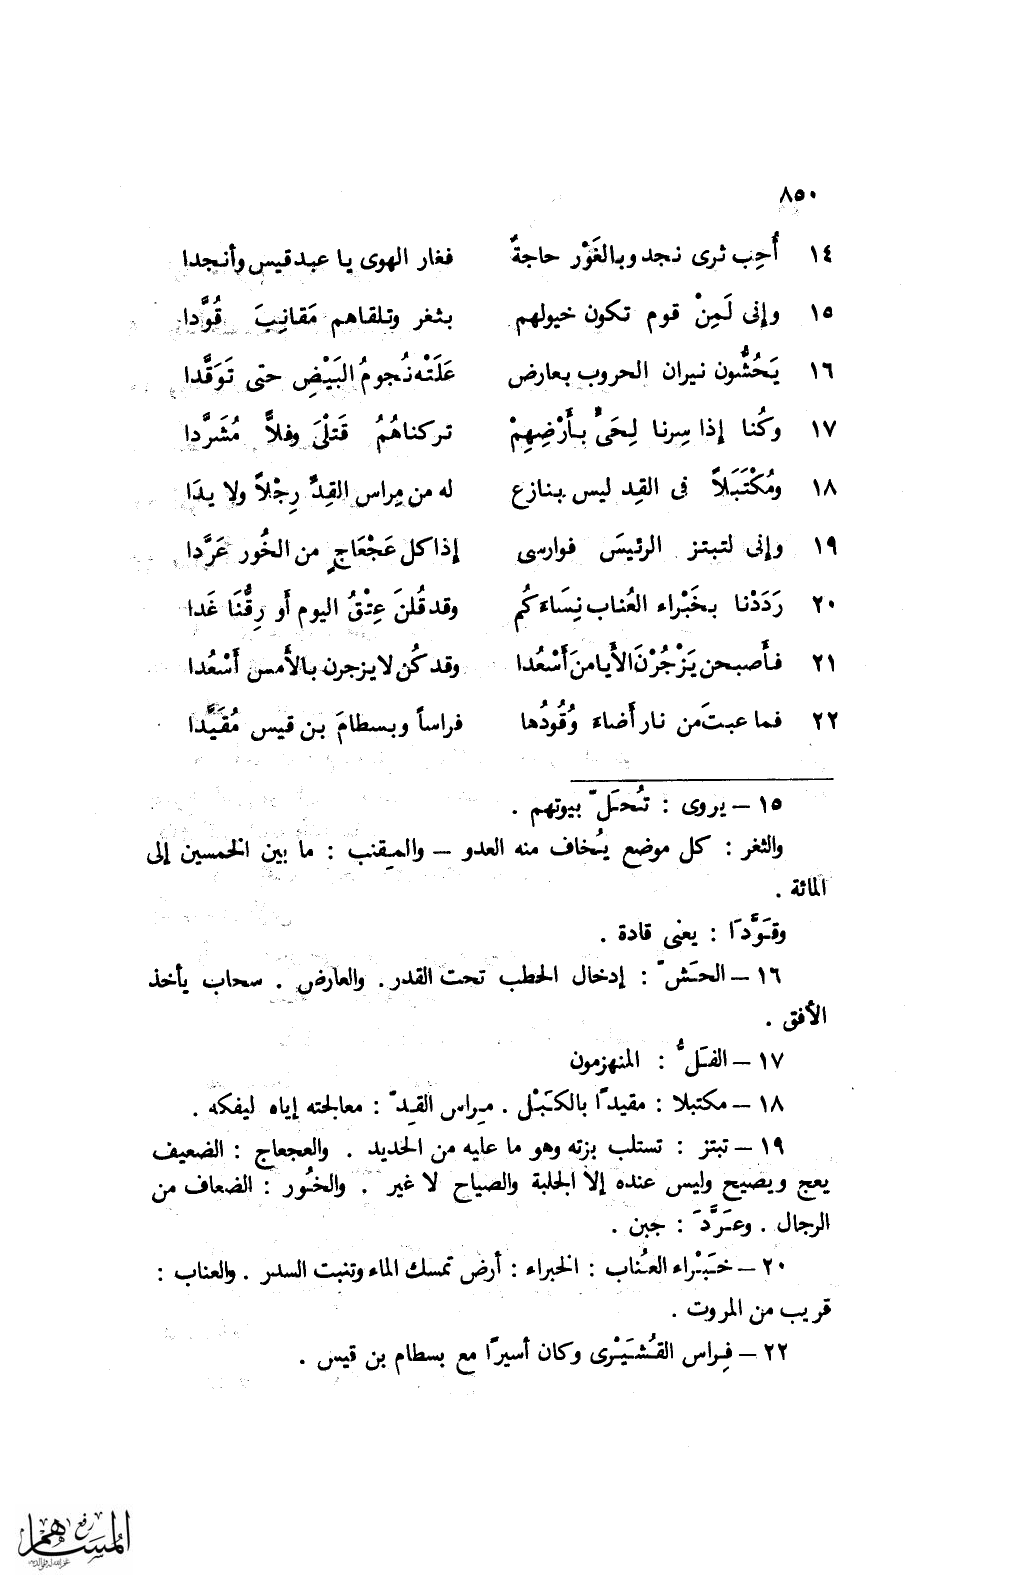 ٨٥٠
١٤ أُحِب ثرى نجد وبالغَوْر حاجةٌ فغار الهوى يا عبد قيس وأنجدا
١٥ وإنى لَمِنْ قوم تكون خيولهم بثغر وتلقاهم مَقانِبَ قُوَّدا
١٦ يَحُشُّون نيران الحروب بعارض عَلَتْه نُجومُ البَيْضِ حتى تَوَقَّدا
١٧ وكُنا إذا سِرنا لِحَىٍّ بأَرْضِهِمْ تركناهُمُ قَتلَى وفلاًّ مُشَرَّدا
١٨ ومُكْتَبَلاً فى القِد ليس بنازع له من مِراس القِدِّ رِجْلاً ولا يدَا
١٩ وإنى لتبتز الرئيسَ فوارسى إذا كل عَجْعَاجٍ من الخُور عَرَّدا
٢٠ رَدَدْنا بخَبْراء العُناب نِسَاءَكُم وقد قُلنَ عِتْقُ اليوم أو رِقُّنَا غَدا
٢١ فأَصبحن يَزْجُرْنَ الأَيامنَ أَسْعُدا وقد كُن لا يزجرن بالأَمس أَسْعُدا
٢٢ فما عبتَ من نار أَضاءَ وُقُودُها فراساً وبسطامَ بن قيس مُقَيَّدا
١٥ – يروى : تُحَلّ بيوتهم .
والثغر : كل موضع يُخاف منه العدو – والمِقنب : ما بين الخمسين إلى
المائة .
وقَوَّدَا : يعنى قادة .
١٦ – الحَشّ : إدخال الحطب تحت القدر . والعارض . سحاب يأخذ
الأفق .
١٧ – الفَلُّ : المنهزمون
١٨ – مكتبلا : مقيدًا بالكَبْل . مِراس القِدّ : معالجته إياه ليفكه .
١٩ – تبتز : تستلب بزته وهو ما عليه من الحديد . والعجعاج : الضعيف
يعج ويصيح وليس عنده إلا الجلبة والصياح لا غير . والخُور : الضعاف من
الرجال . وعَرَّدَ : جبن .
٢٠ – خَبْراء العُناب : الخبراء : أرض تمسك الماء وتنبت السدر . والعناب :
قريب من المروت .
٢٢ – فِراس القُشَيْرى وكان أسيرًا مع بسطام بن قيس .
رفع
المساهم